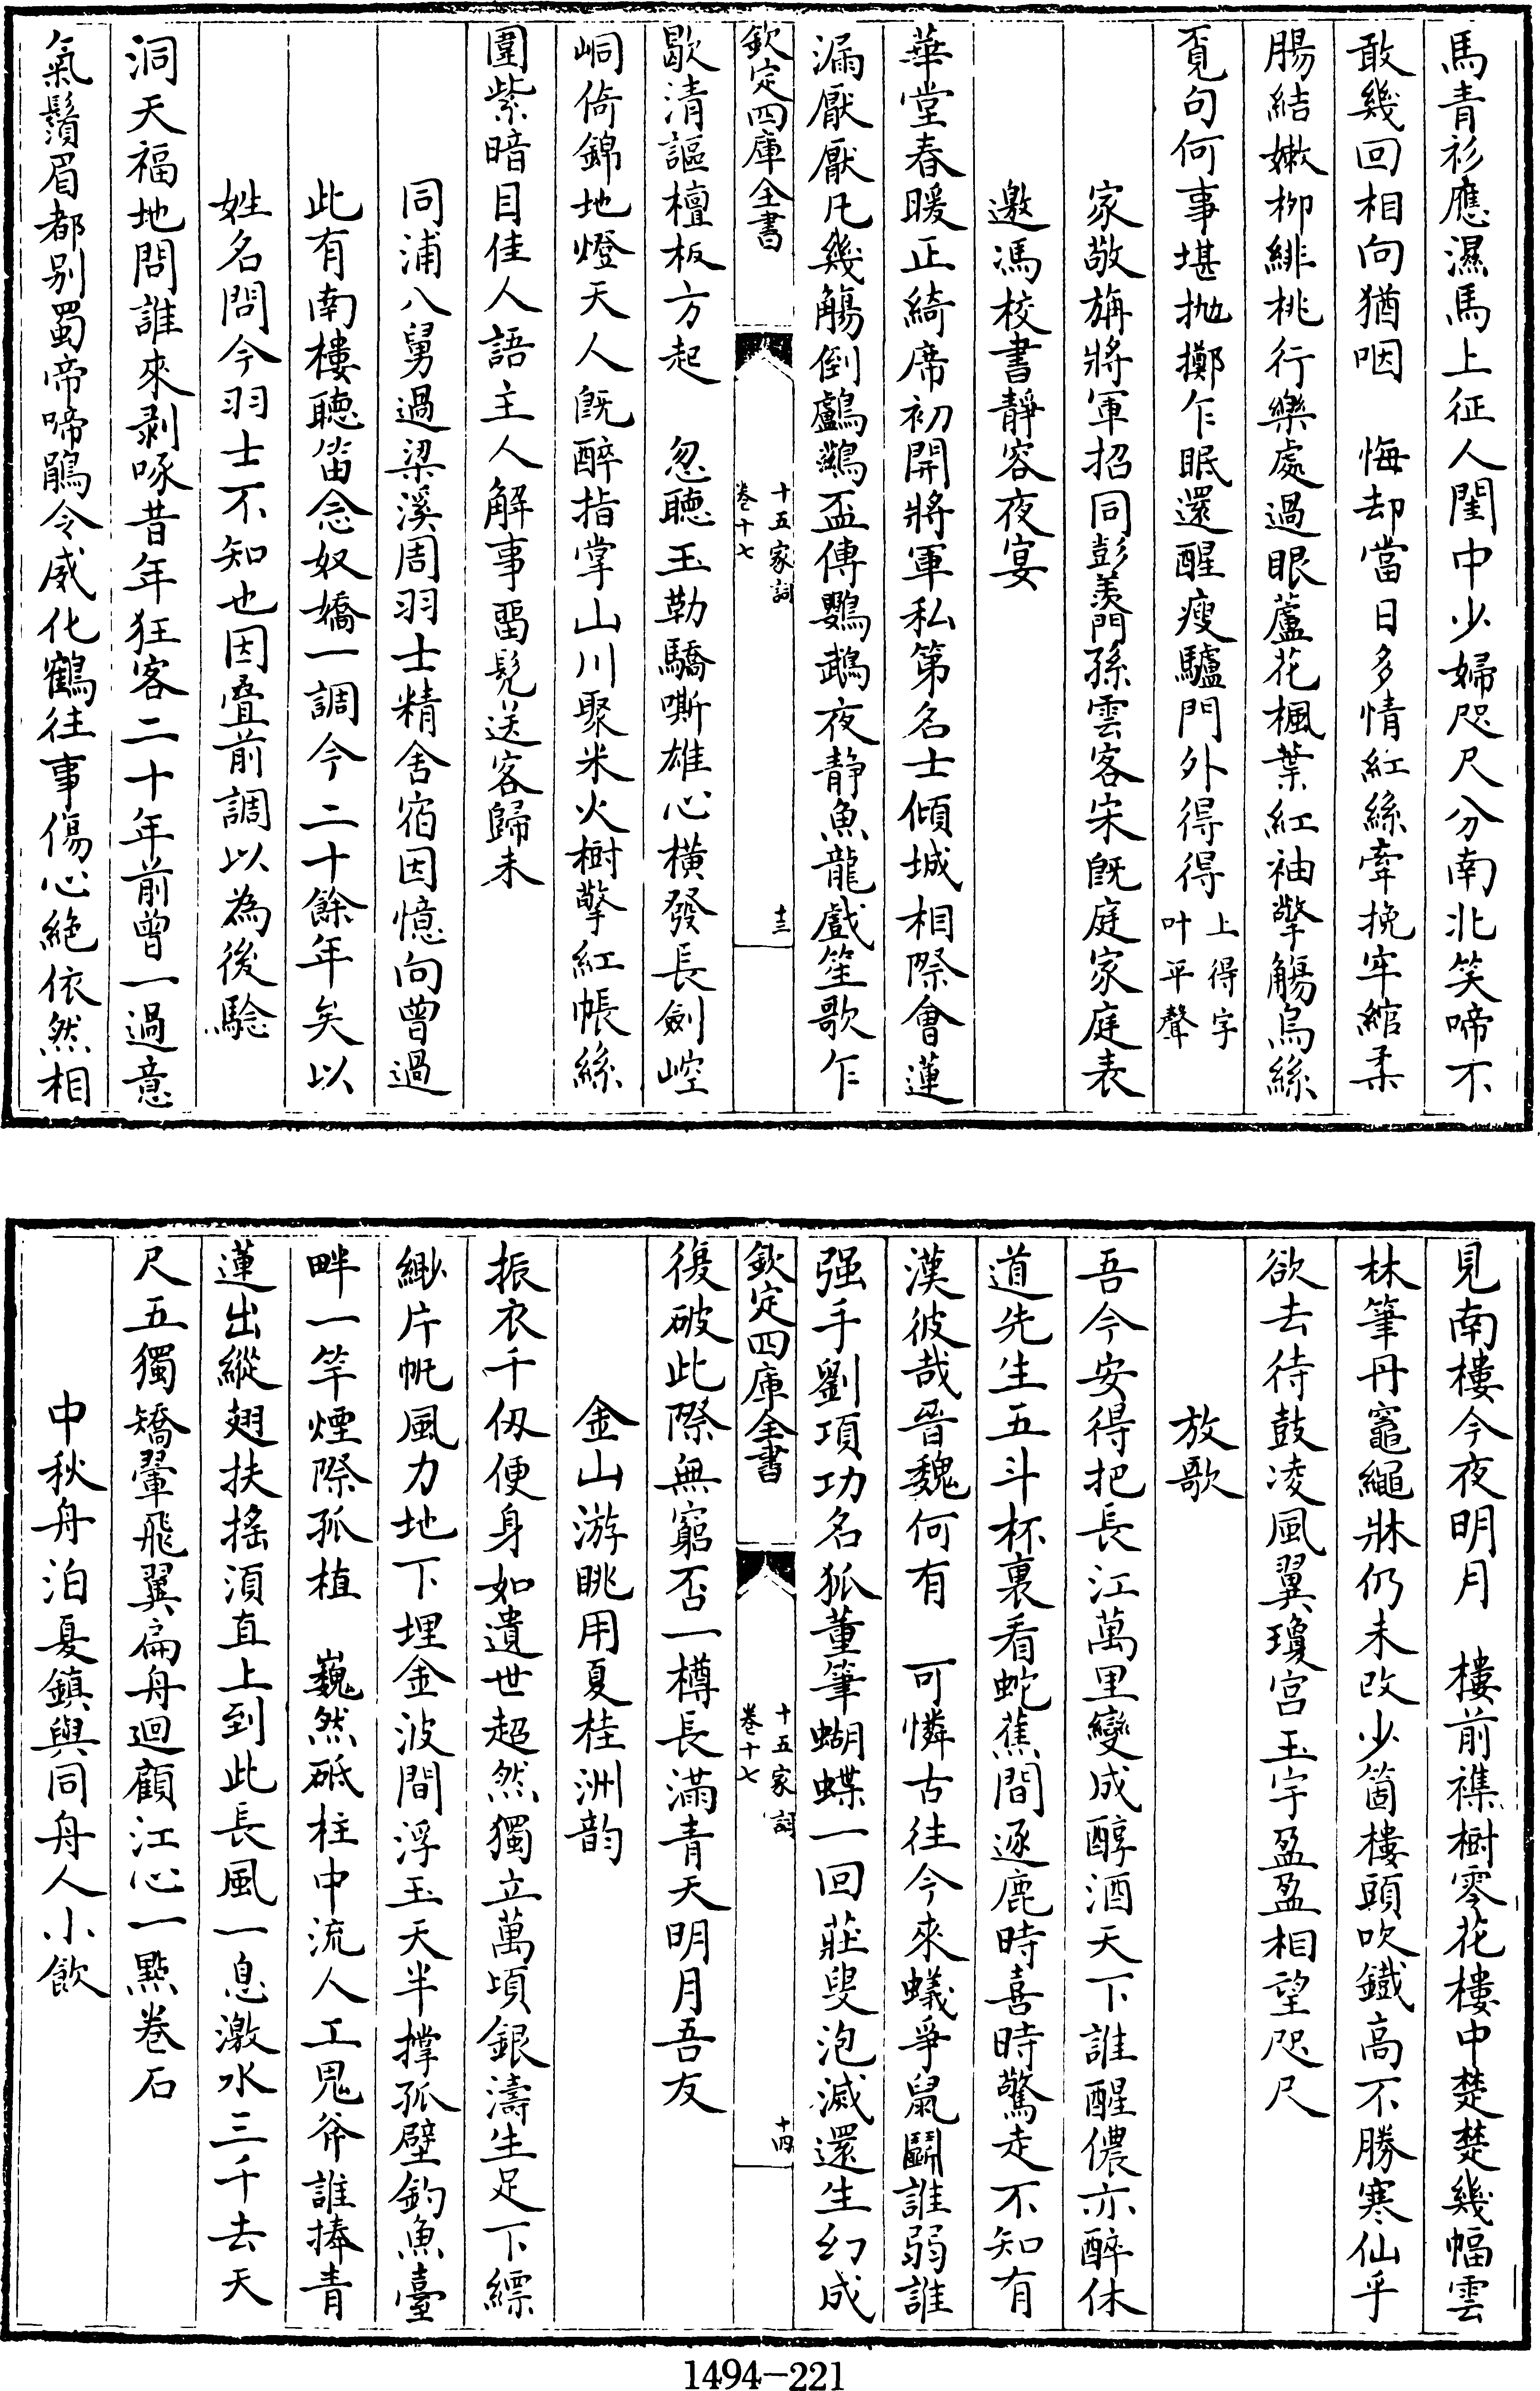 馬青衫應濕馬上征人閨中少婦咫尺分南北笑啼不
敢幾回相向猶咽　悔却當日多情紅絲牽挽牢綰柔
腸結嫩柳緋桃行樂處過眼蘆花楓葉紅袖擎觴烏絲
覔句何事堪抛擲乍眠還醒瘦驢門外得得上得字叶平聲
家敬旃將軍招同彭羨門孫雲客宋既庭家庭表
邀馮校書靜容夜宴
華堂春暖正綺席初開將軍私第名士傾城相際會蓮
漏厭厭凡幾觴倒鸕鷀盃傳鸚鵡夜静魚龍戲笙歌乍
欽定四庫全書
十五家詞
卷十七
十三
歇清謳檀板方起　忽聽玉勒驕嘶雄心橫發長劍崆
峒倚錦地燈天人既醉指掌山川聚米火樹擎紅帳絲
圍紫暗目佳人語主人解事畱髠送客歸未
同浦八舅過梁溪周羽士精舍宿因憶向曾過
此有南樓聽笛念奴嬌一調今二十餘年矣以
姓名問今羽士不知也因疊前調以為後騐
洞天福地問誰來剥啄昔年狂客二十年前曾一過意
氣鬚眉都别蜀帝啼鵑令威化鶴往事傷心絶依然相
見南樓今夜明月　樓前襍樹零花樓中楚楚幾幅雲
林筆丹竈繩牀仍未改少箇樓頭吹鐵高不勝寒仙乎
欲去待鼓凌風翼瓊宫玉宇盈盈相望咫尺
放歌
吾今安得把長江萬里變成醇酒天下誰醒儂亦醉休
道先生五斗杯裏看蛇蕉間逐鹿時喜時驚走不知有
漢彼哉晉魏何有　可憐古往今來蟻爭鼠鬬誰弱誰
强手劉項功名狐董筆蝴蝶一回莊叟泡滅還生幻成
欽定四庫全書
十五家詞
卷十七
十四
復破此際無窮否一樽長滿青天明月吾友
金山游眺用夏桂洲韵
振衣千仞便身如遺世超然獨立萬頃銀濤生足下縹
緲片帆風力地下埋金波間浮玉天半撑孤壁釣魚臺
畔一竿煙際孤植　巍然砥柱中流人工鬼斧誰捧青
蓮出縱翅扶摇湏直上到此長風一息激水三千去天
尺五獨矯翬飛翼扁舟迴顧江心一點卷石
中秋舟泊夏鎮與同舟人小飲
1494－221